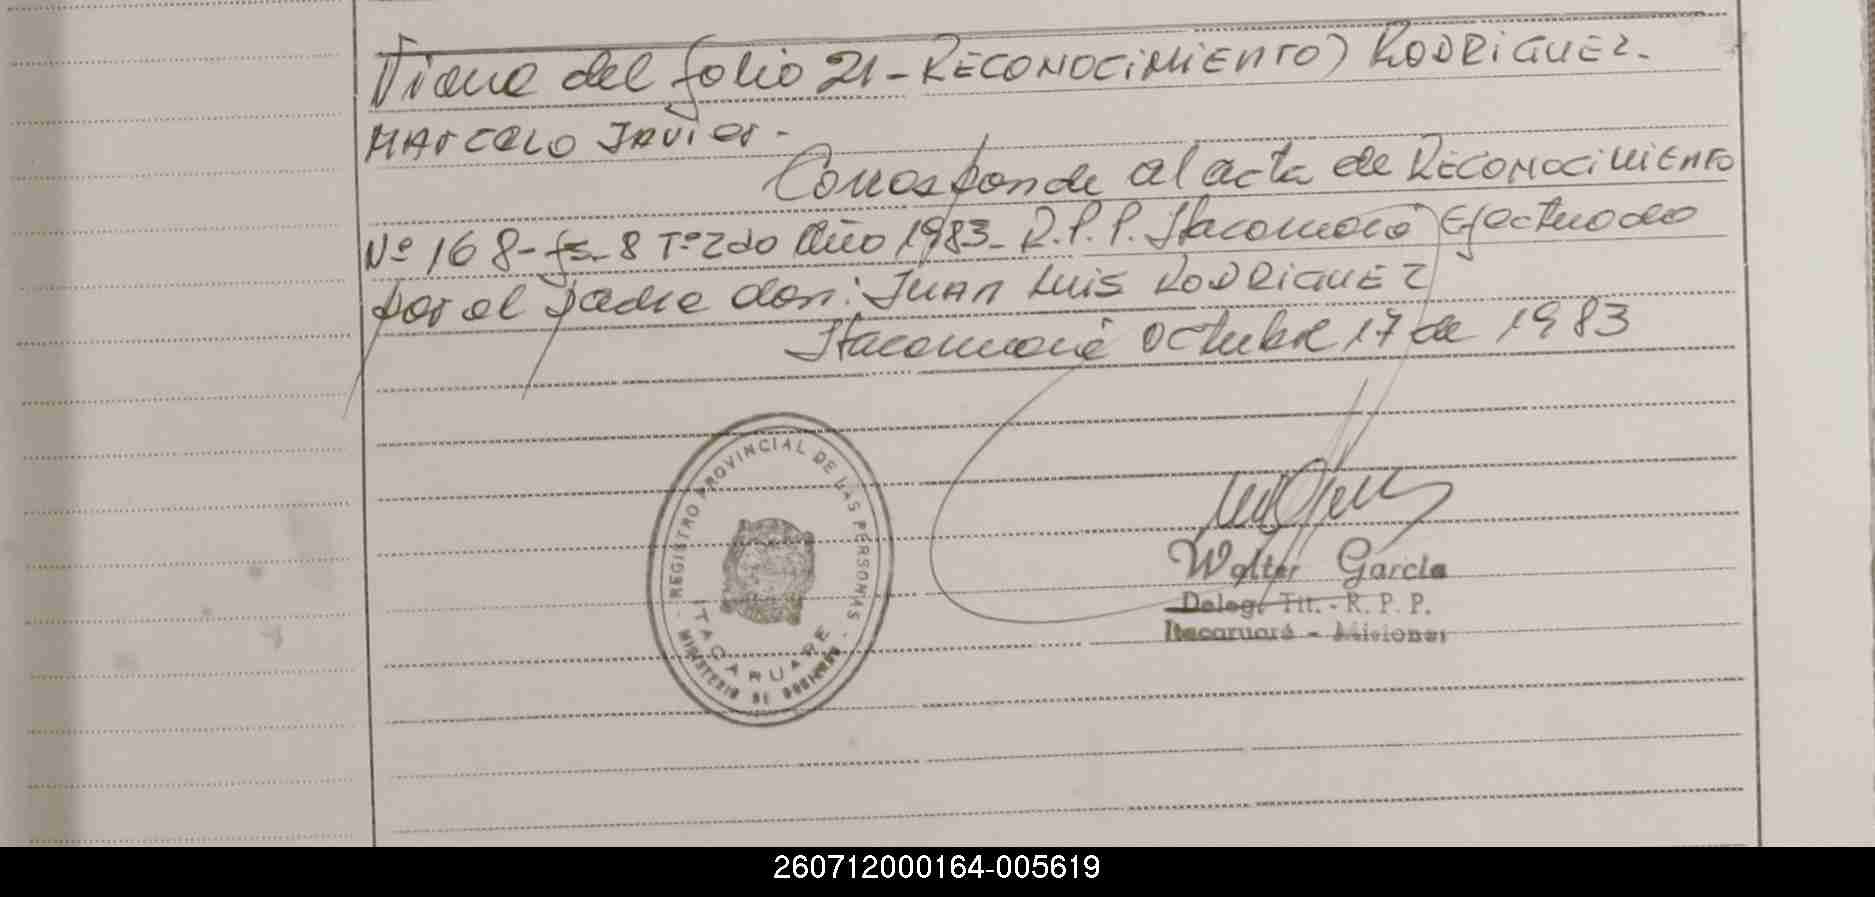 Viene del folio 21 - RECONOCIMIENTO) RODRIGUEZ.
MARCELO JAVIER -
Corresponde al acta de RECONOCIMIENTO
Nº 168 - fs. 8 Tº 2do Año 1983 - R.P.P. Itacaruaré Efectuado
por el padre don: JUAN LUIS RODRIGUEZ
Itacaruaré Octubre 17 de 1983
REGISTRO PROVINCIAL DE LAS PERSONAS -
ITACARUARE
MINISTERIO DE GOBIERNO
Walter Garcia
Deleg. Tit. - R. P. P.
Itacaruaré - Misiones
260712000164-005619